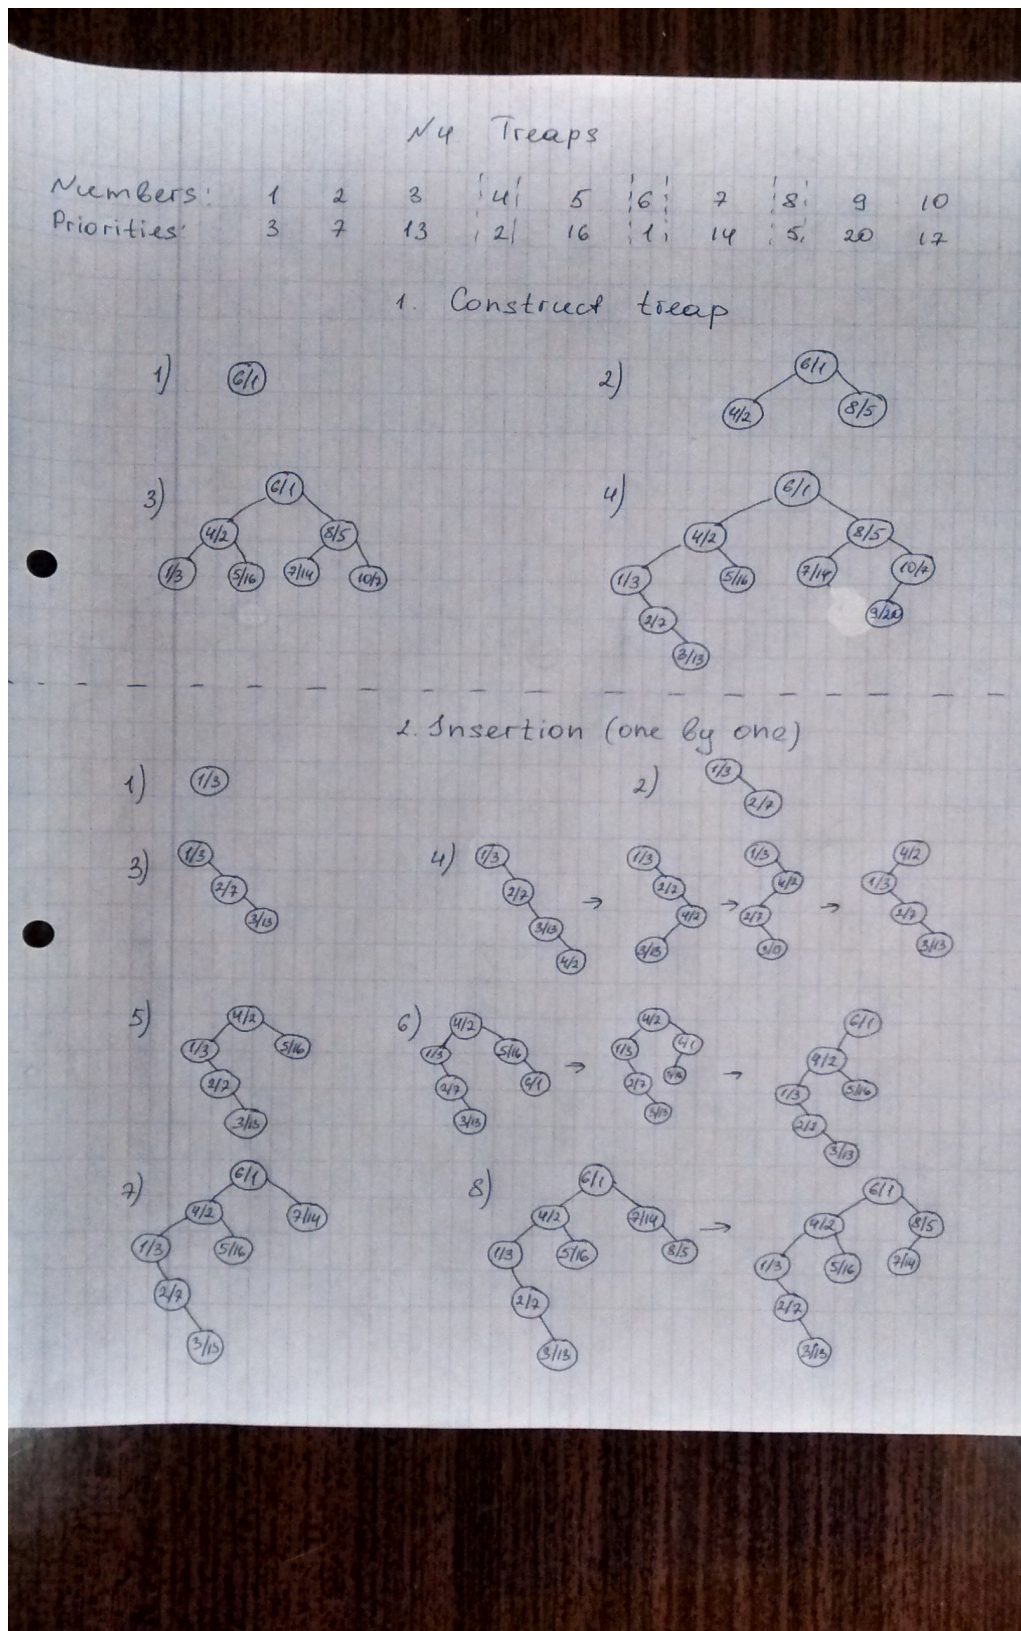 N4 Treaps
Numbers: 1 2 3 4 5 6 7 8 9 10
Priorities: 3 7 13 2 16 1 14 5 20 17
1. Construct treap
1) 6/1
2) 6/1
4/2 8/5
3) 6/1
4/2 8/5
1/3 5/16 7/14 10/7
4) 6/1
4/2 8/5
1/3 5/16 7/14 10/7
2/7 9/20
3/13
2. Insertion (one by one)
1) 1/3
2) 1/3
2/7
3) 1/3
2/7
3/13
4) 1/3 → 1/3 → 1/3 → 4/2
2/7 2/7 4/2 1/3
3/13 4/2 2/7 2/7
4/2 3/13 3/13 3/13
5) 4/2
1/3 5/16
2/7
3/13
6) 4/2 → 4/2 → 6/1
1/3 5/16 1/3 4/2
2/7 6/1 2/7 1/3 5/16
3/13 3/13 2/7
3/13
7) 6/1
4/2 7/14
1/3 5/16
2/7
3/13
8) 6/1 → 6/1
4/2 7/14 4/2 8/5
1/3 5/16 8/5 1/3 5/16 7/14
2/7 2/7
3/13 3/13